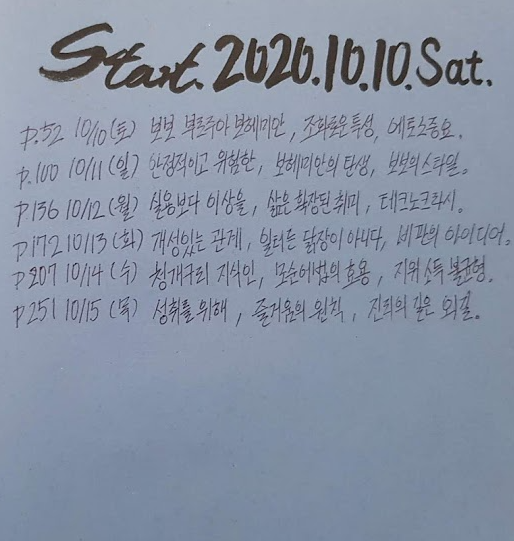 Start. 2020.10.10. Sat.
p.52 10/10 (토) 보보 부르주아 보헤미안, 조화로운 특성, 에토스중요.
p.100 10/11 (일) 안정적이고 위험한, 보헤미안의 탄생, 보보의 스타일.
p136 10/12 (월) 실용보다 이상을, 삶은 확장된 취미, 테크노크라시.
p172 10/13 (화) 개성있는 관계, 일터는 닭장이 아니다, 비판의 아이디어.
p207 10/14 (수) 청개구리 지식인, 모순어법의 효용, 지위 소득 불균형.
p251 10/15 (목) 성취를 위해, 즐거움의 원칙, 진리의 길은 외길.